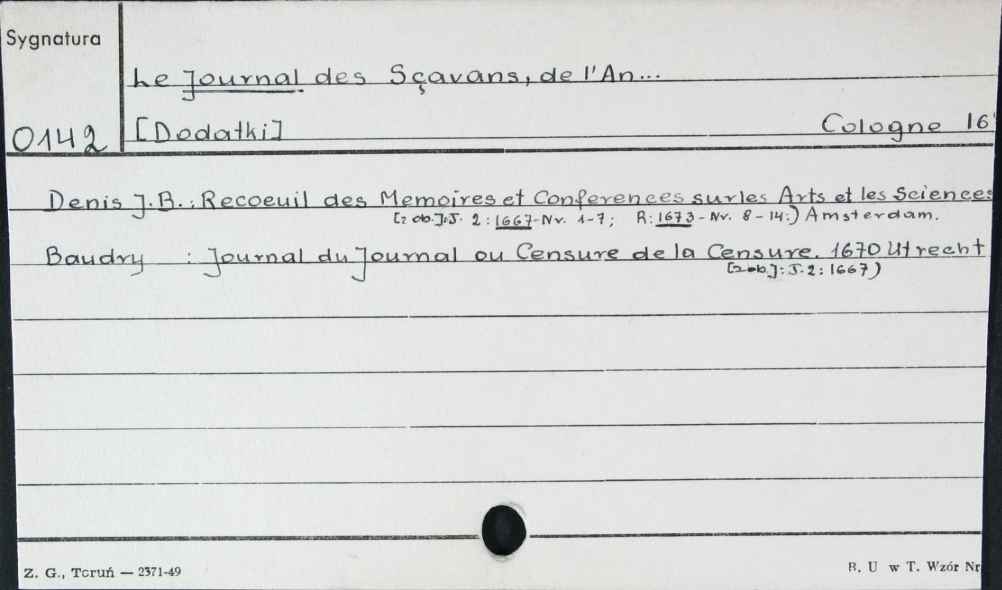 Sygnatura
Le Journal des Sçavans, de l'An...
0142 [Dodatki] Cologne 16
Denis J.B.: Recoeuil des Memoires et Conferences sur les Arts et les Sciences
[z ob.]: J. 2: 1667-Nr. 1-7; R: 1673-Nr. 8-14:) Amsterdam.
Baudry : Journal du Journal ou Censure de la Censure. 1670 Utrecht
[z ob.]: J. 2: 1667)
Z. G., Toruń — 2371-49 B. U w T. Wzór Nr